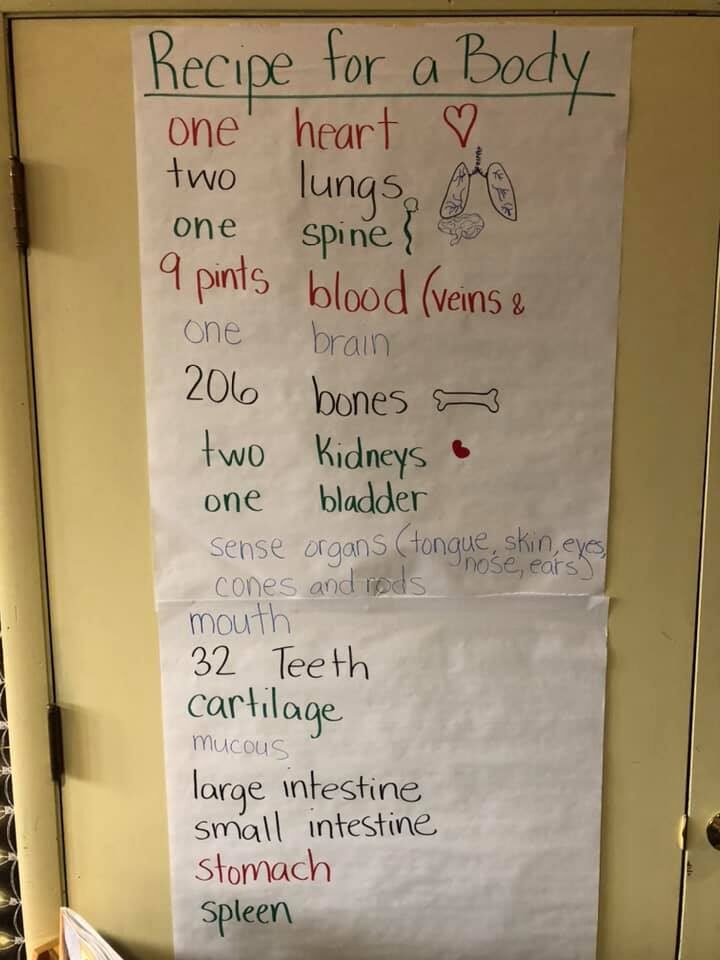 Recipe for a Body
one heart
two lungs
one spine
9 pints blood (veins &
one brain
206 bones
two kidneys
one bladder
sense organs (tongue, skin, eyes,
nose, ears)
cones and rods
mouth
32 Teeth
cartilage
mucous
large intestine
small intestine
stomach
spleen